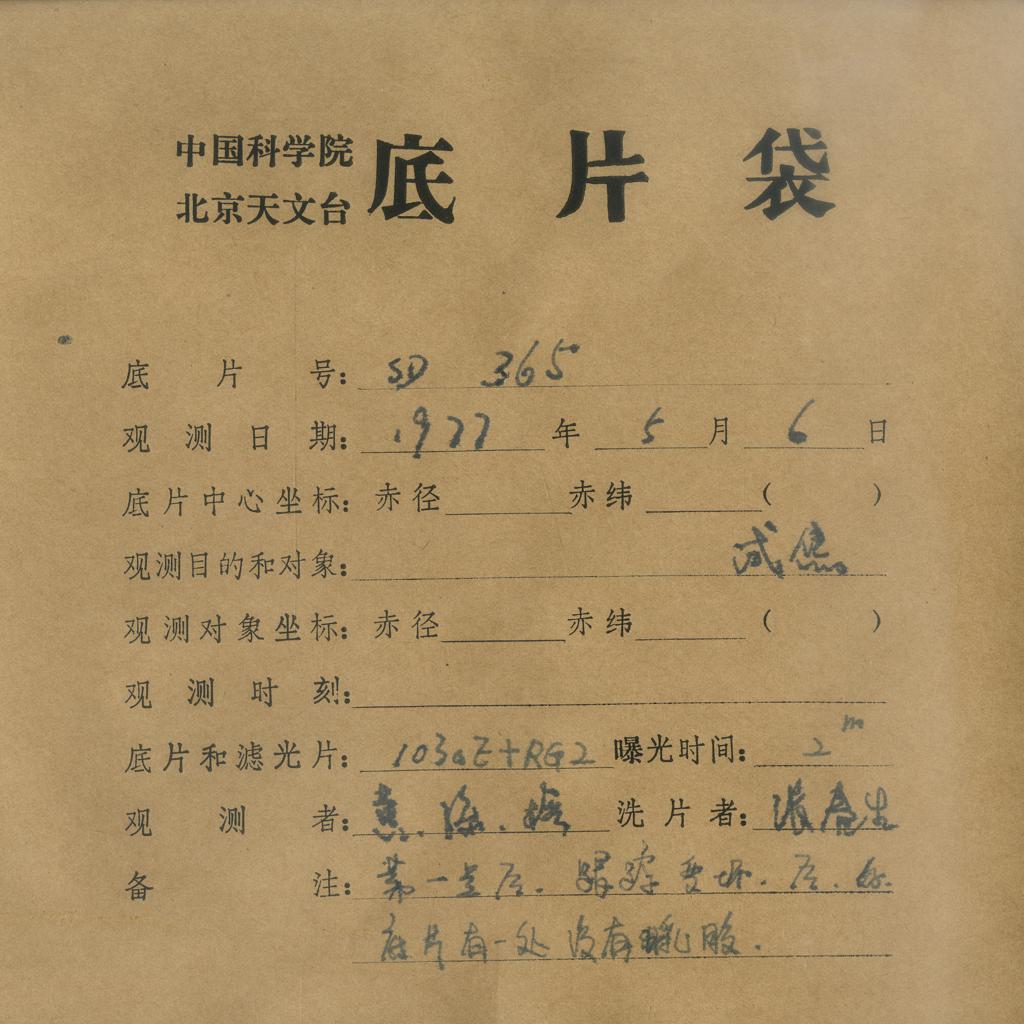 中国科学院
北京天文台
底片袋
底片号： SD 365
观测日期： 1977 年 5 月 6 日
底片中心坐标：赤径 赤纬 （ ）
观测目的和对象： 试焦
观测对象坐标：赤径 赤纬 （ ）
观测时刻：
底片和滤光片： 103aE+RG2 曝光时间： 2m
观测者： 洗片者： 张春生
备注： 第一点后．跟踪变坏．
底片有一处没有乳胶．